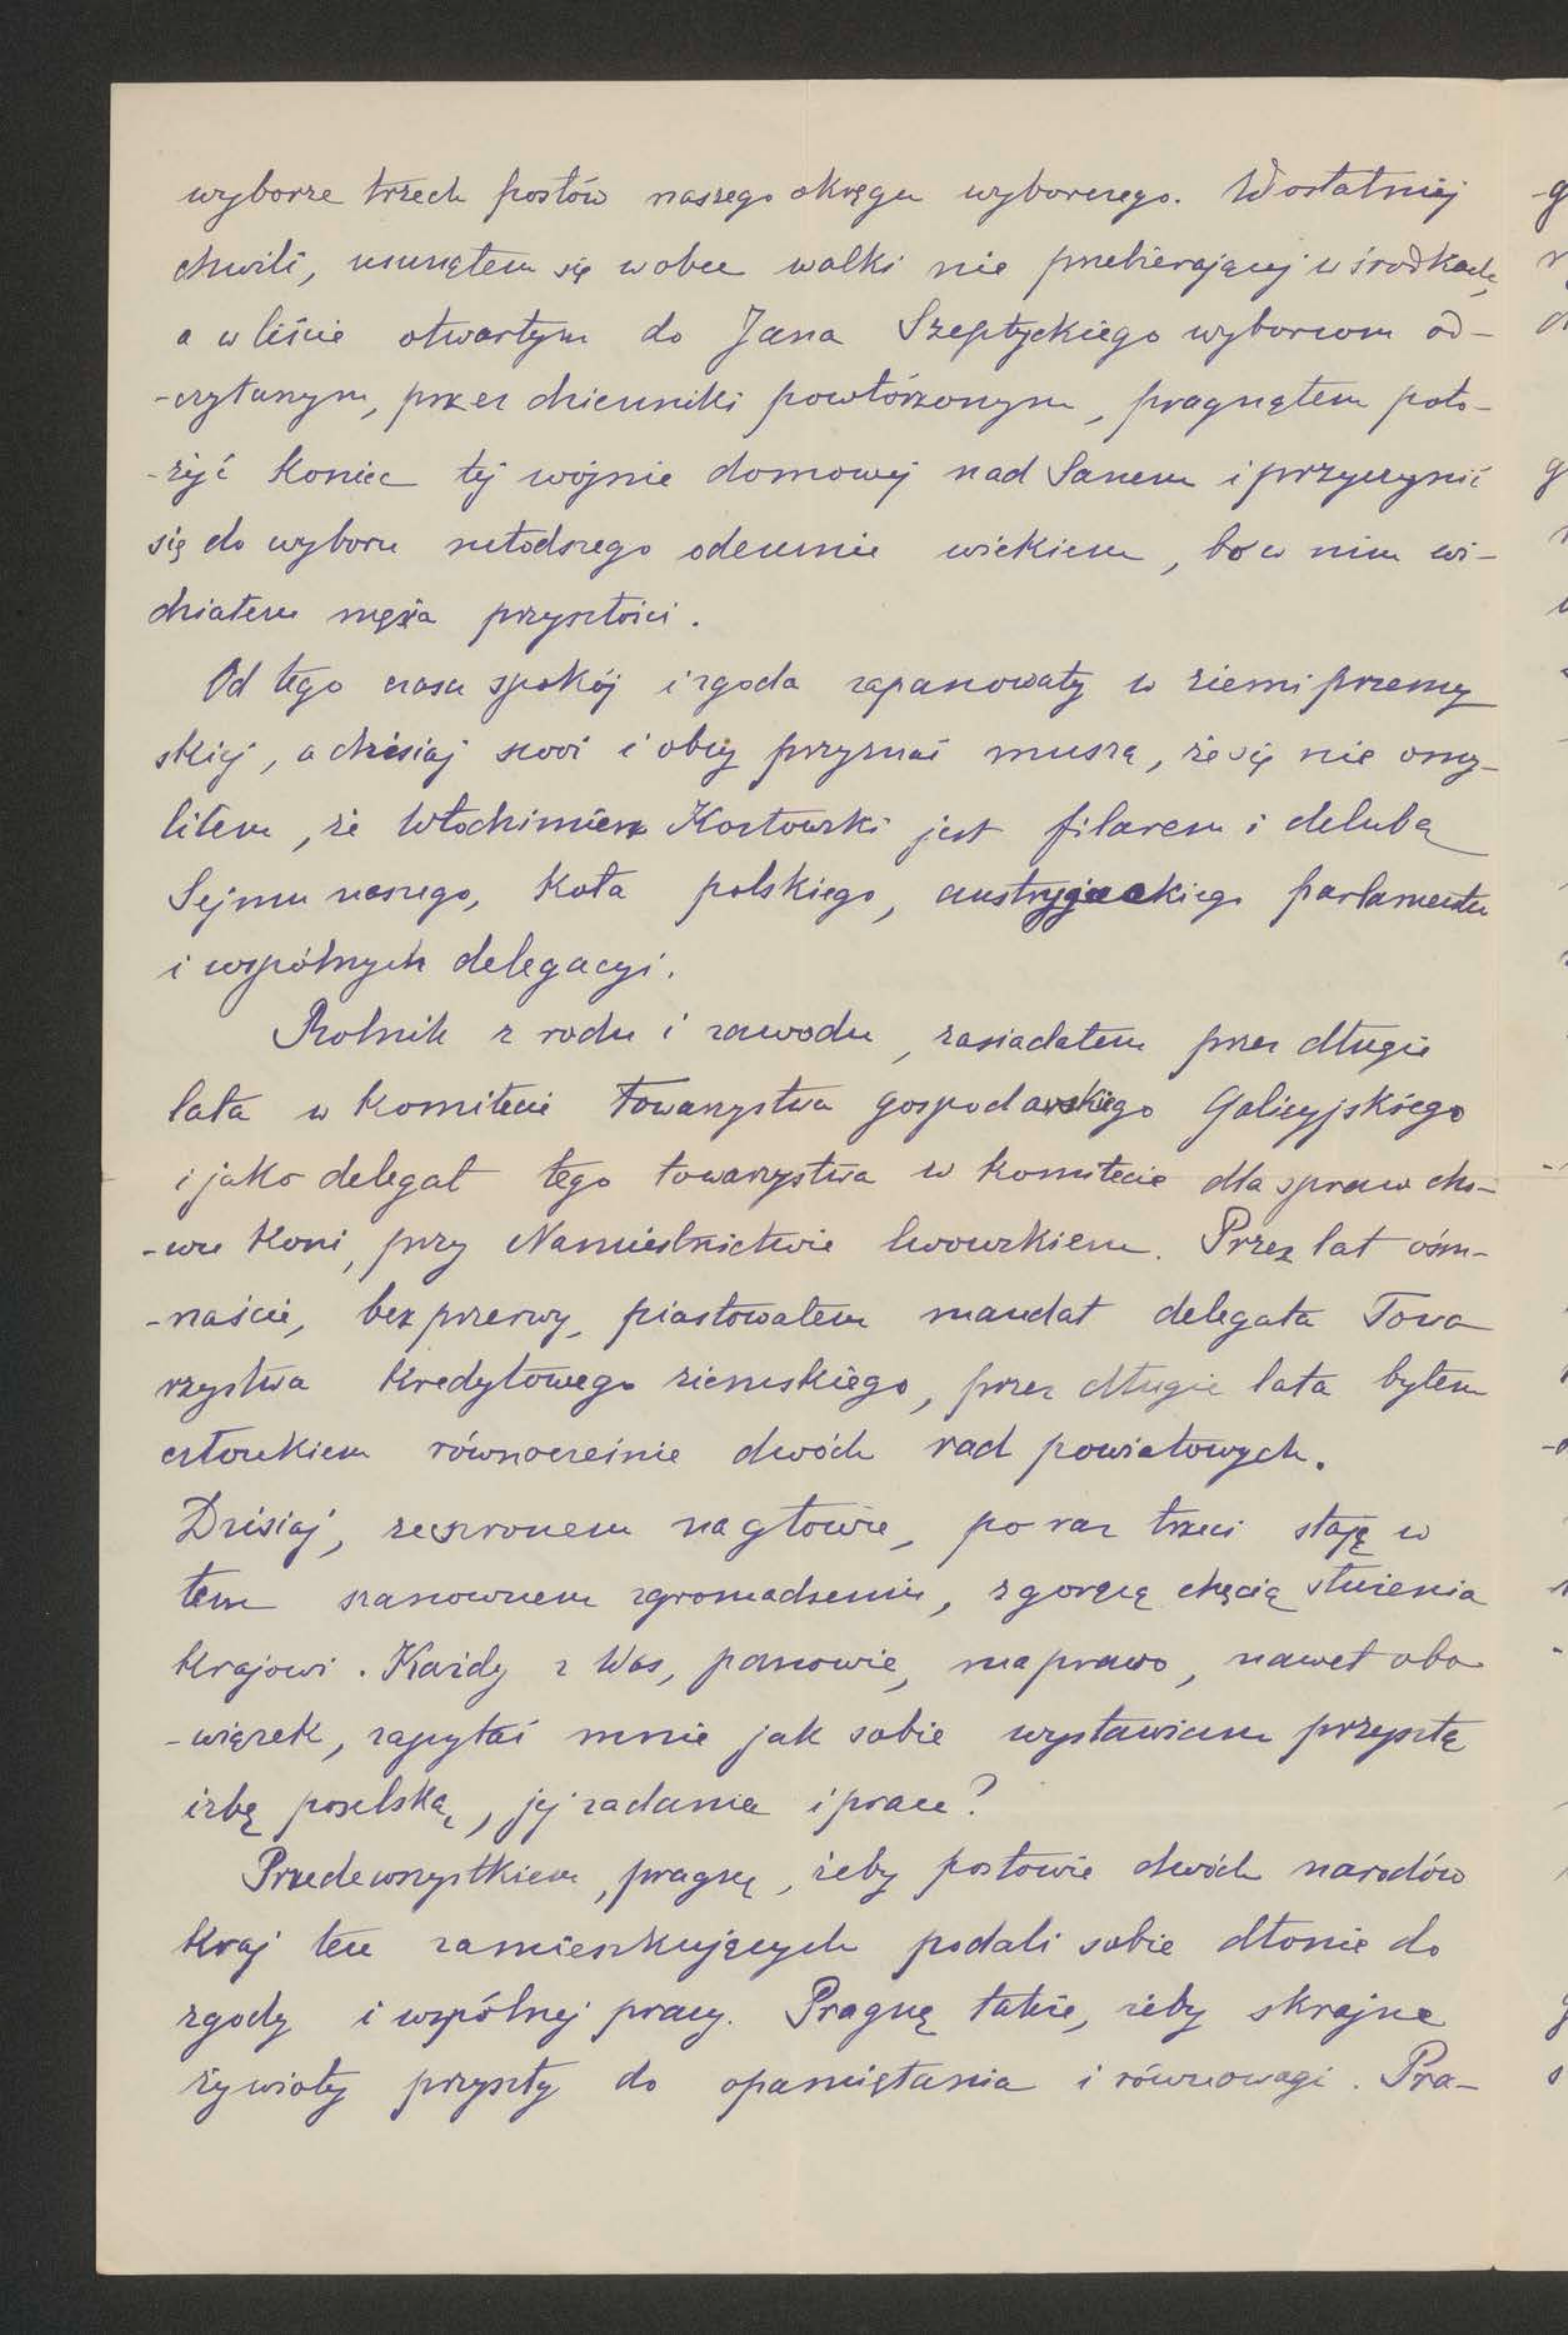 wyborze trzech posłów naszego okręgu wyborczego. W ostatniej
chwili, usunąłem się wobec walki nie przebierającej w środkach,
a w liście otwartym do Jana Szeptyckiego wyborcom od-
-czytanym, przez dzienniki powtórzonym, pragnąłem poło-
-żyć koniec tej wojnie domowej nad Sanem i przyczynić
się do wyboru młodszego odemnie wiekiem, bo w nim wi-
działem męża przyszłości.
Od tego czasu spokój i zgoda zapanowały w ziemi przemy
skiej, a dzisiaj swoi i obcy przyznać muszą, że się nie omy-
liłem, że Włodzimierz Kozłowski jest filarem i chlubą
Sejmu naszego, Koła polskiego, austryjackiego parlamentu
i wspólnych delegacyi.
Rolnik z rodu i zawodu, zasiadałem przez długie
lata w komitecie Towarzystwa gospodarskiego Galicyjskiego
i jako delegat tego towarzystwa w komitecie dla spraw cho-
-wu koni, przy Namiestnictwie lwowskiem. Przez lat ośm-
-naście, bez przerwy, piastowałem mandat delegata Towa
rzystwa Kredytowego ziemskiego, przez długie lata byłem
członkiem równocześnie dwóch rad powiatowych.
Dzisiaj, ze szronem na głowie, po raz trzeci staję w
tem szanownem zgromadzeniu, z gorącą chęcią służenia
Krajowi. Każdy z Was, panowie, ma prawo, nawet obo
-wiązek, zapytać mnie jak sobie wystawiam przyszłą
izbę poselską, jej zadania i prace?
Przedewszystkiem, pragnę, żeby posłowie dwóch narodów
Kraj ten zamieszkujących podali sobie dłonie do
zgody i wspólnej pracy. Pragnę także, żeby skrajne
żywioły przyszły do opamiętania i równowagi. Pra-